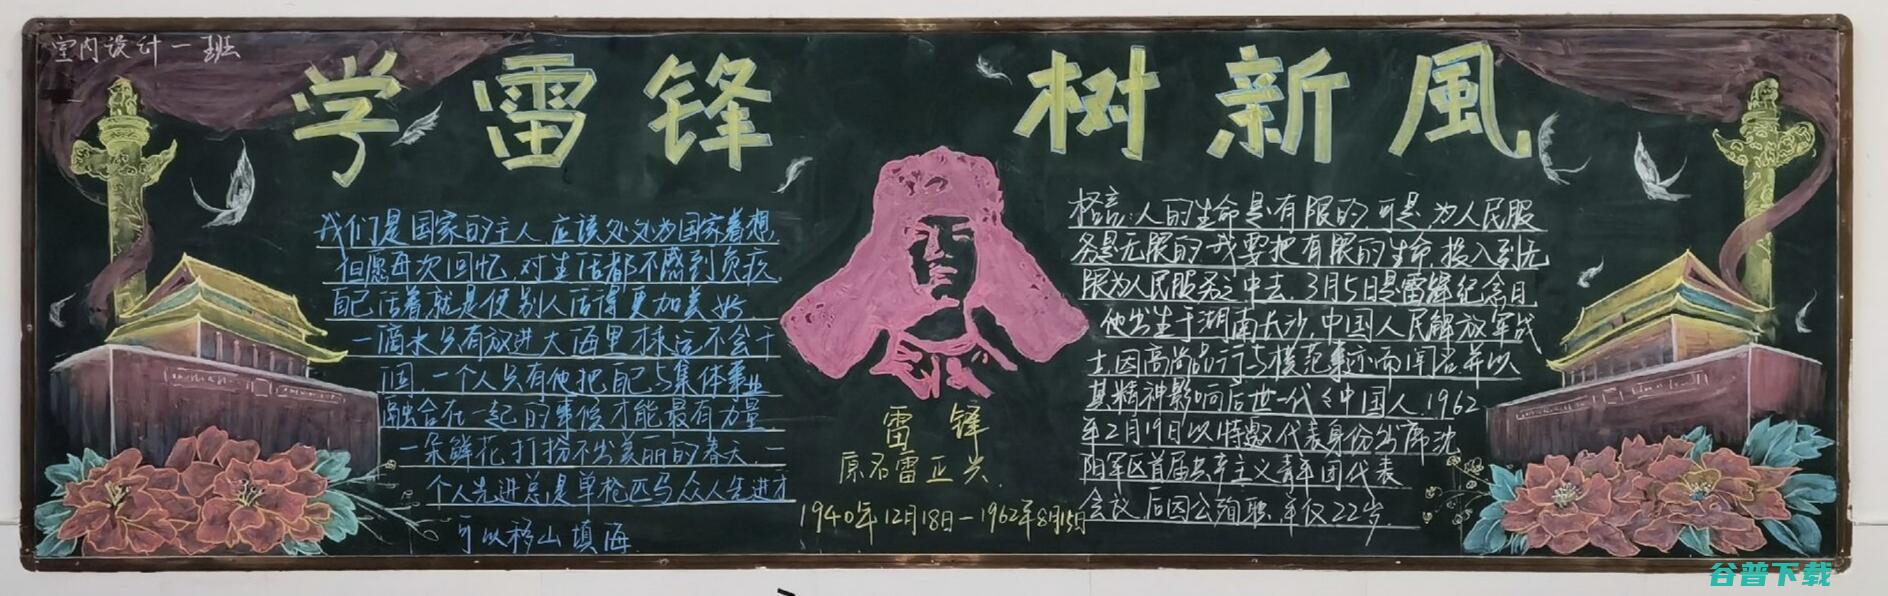 室内设计一班
学雷锋 树新風
我们是国家的主人,应该处处为国家着想
但愿每次回忆,对生活都不感到负疚
自己活着就是使别人活得更加美好
一滴水只有放进大海里才永远不会干
涸,一个人只有他把自己与集体事业
融合在一起的事候才能最有力量
一朵鲜花打扮不出美丽的春天,一
个人先进总是单枪匹马众人先进才
可以移山填海
雷锋
原名雷正兴
1940年12月18日—1962年8月15日
格言:人的生命是有限的,可是,为人民服
务是无限的我要把有限的生命,投入到无
限为人民服务之中去,3月5日是雷锋纪念日
他出生于湖南长沙,中国人民解放军战
士,因高尚品行与模范事迹而闻名并以
其精神影响后世一代代中国人,1962
年2月19日以特邀代表身份出席沈
阳军区首届共产主义青年团代表
会议,后因公殉职,年仅22岁.
谷普下载